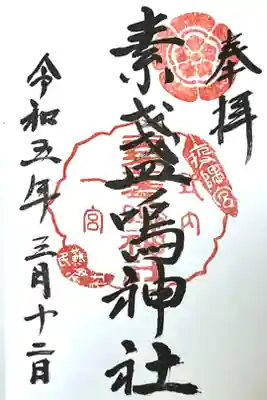 奉拝
素盞嗚神社
令和五年三月十二日
宮